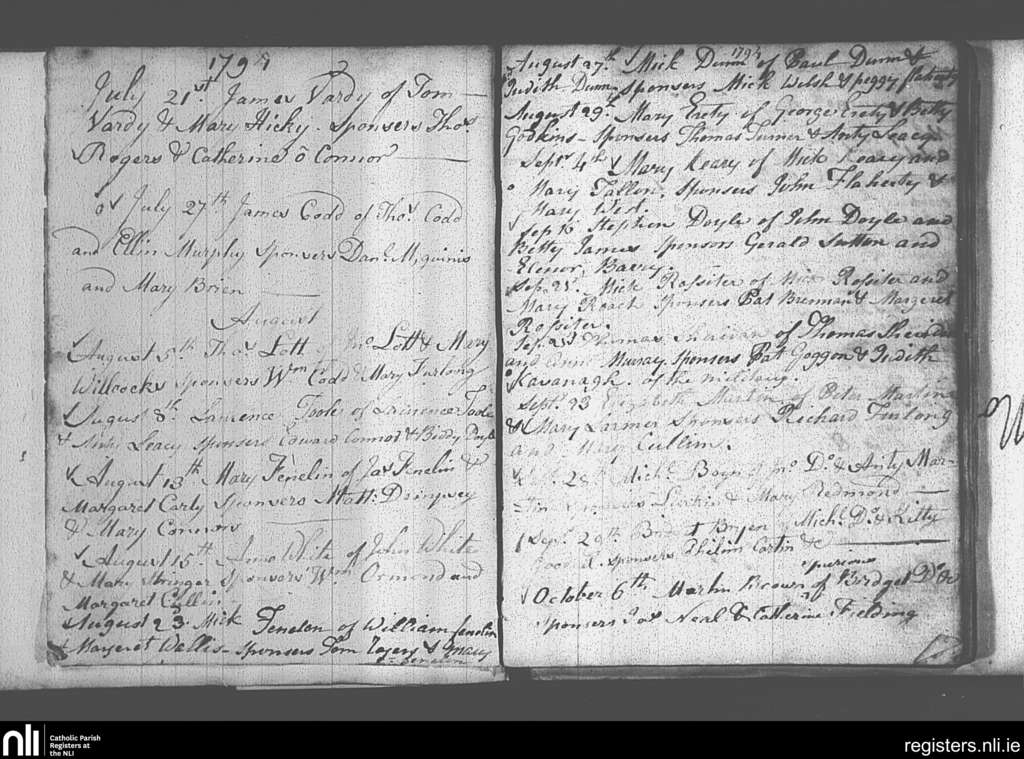 1794
July 21st James Vardy of Tom
Vardy & Mary Hicky - Sponsers Thos.
Rogers & Catherine ô Connor
July 27th James Codd of Thos. Codd
and Ellin Murphy Sponsers Danl. Mc.guinis
and Mary Brien
August
August 5th Thos. Lott of Jno Lott & Mary
Willcocks Sponsers Wm Codd & Mary Furlong
August 8th Laurence Toole of Laurence Toole
& Anty Leacy Sponsers Edward Connor & Biddy Doyle
August 13th Mary Fenelin of Jas Fenelin &
Margaret Carly Sponsers Matt: Dempsey
& Mary Connors
August 15th Anne White of John White
& Mary Stringer Sponsers Wm Ormond and
Margaret Cullin
August 23 Mick Fenelon of William fenelin
& Margeret Wallis - Sponsers Tom Rogers & Mary
fenelon
1794
August 27th Mick Dunn of Paul Dunn &
Judith Dunn Sponsers Mick Welsh & peggy flaherty
August 29th Mary Erety of George Erety & Betty
Godkins - Sponsers Thomas Turner & Anty Leacy
Septr 4th Mary Keary of Mick Keary and
Mary Fallon, Sponsers John Flaherty &
Mary West.
Sep 16 Stephen Doyle of John Doyle and
Kitty James Sponsors Gerald Sutton and
Elenor Barry
Sep. 21. Mick Rossiter of Mick Rossiter and
Mary Roach Sponsers Pat Brennan & Margeret
Rossiter.
Sep. Thomas of Thomas
and Ann Murray Sponsers Pat Goggon & Judith
Kavanagh. of the military.
Sept. 23 Elizabeth Martin of Peter Martin
& Mary Larmer Sponsers Richard Furlong
and Mary Cullin.
Sept. 28th Michl. of Jno Do. & Anty Mar-
tin Sponsers Larkin & Mary Redmond
Sept 29th Bryen of Michl. Do. & Kitty
sponsers Phelim Costin &c
October 6th Martin Brown of Bridget Do. &
Sponsers Jas Neal & Catherine Fielding
nli
Catholic Parish
Registers at
the NLI
registers.nli.ie